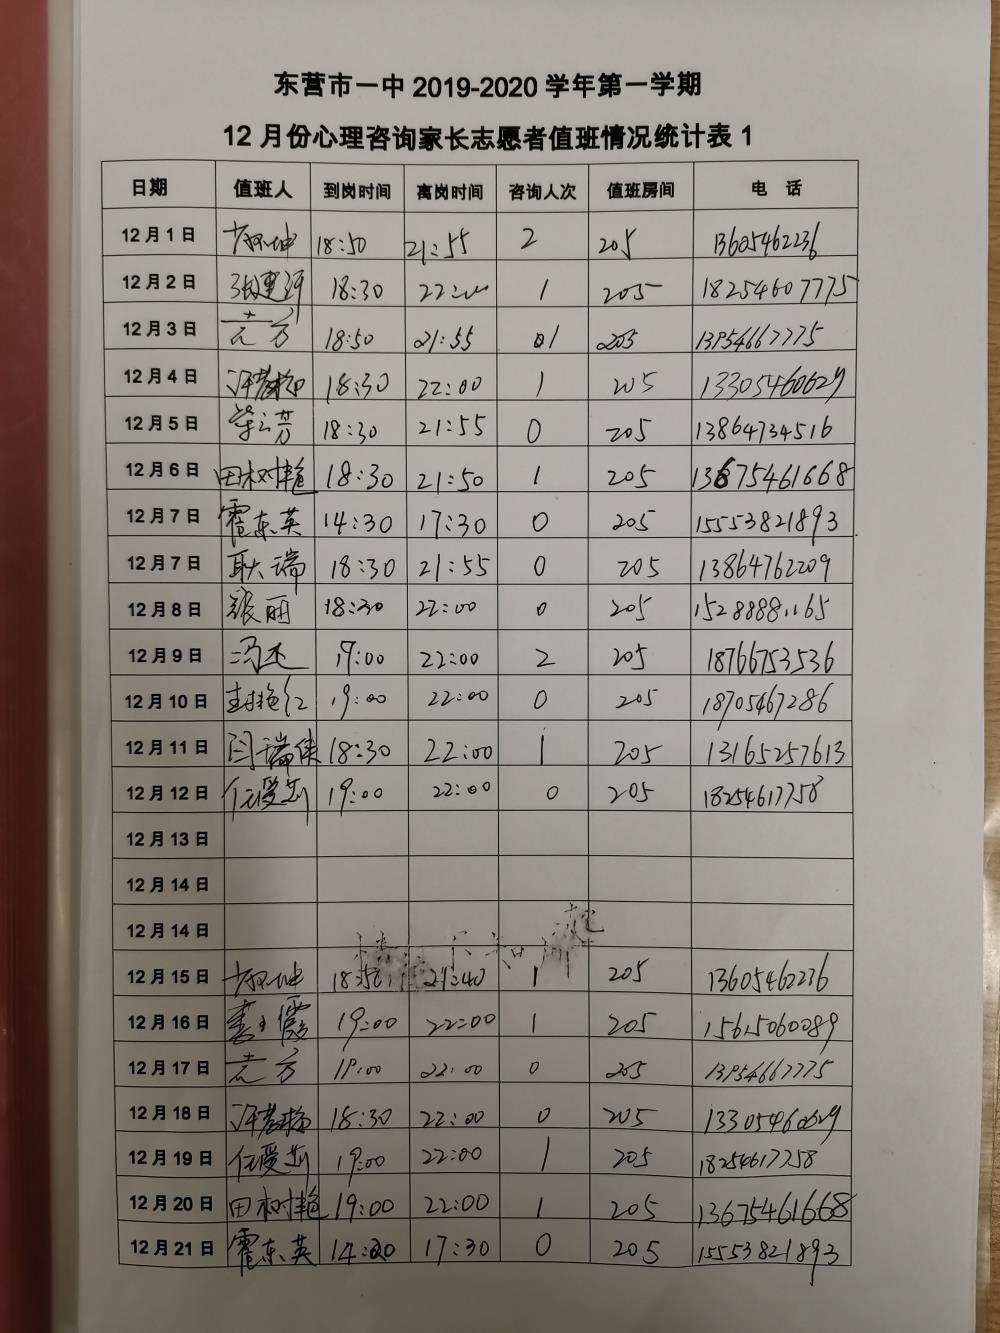 东营市一中 2019-2020 学年第一学期
12 月份心理咨询家长志愿者值班情况统计表 1
日期 值班人 到岗时间 离岗时间 咨询人次 值班房间 电 话
12 月 1 日 18:50 21:55 2 205 13605462236
12 月 2 日 18:30 22:00 1 205 18254607775
12 月 3 日 18:50 21:55 1 205 13954667775
12 月 4 日 18:30 22:00 1 205 13305460629
12 月 5 日 18:30 21:55 0 205 13864734516
12 月 6 日 田树艳 18:30 21:50 1 205 13675461668
12 月 7 日 霍东英 14:30 17:30 0 205 15553821893
12 月 7 日 耿瑞 18:30 21:55 0 205 13864762209
12 月 8 日 张丽 18:30 22:00 0 205 15288881165
12 月 9 日 19:00 22:00 2 205 18766753536
12 月 10 日 封艳红 19:00 22:00 0 205 18705467286
12 月 11 日 闫瑞侠 18:30 22:00 1 205 13165257613
12 月 12 日 19:00 22:00 0 205 18254617758
12 月 13 日
12 月 14 日
12 月 14 日
12 月 15 日 18:50 21:40 1 205 13605462236
12 月 16 日 19:00 22:00 1 205 15615060089
12 月 17 日 19:00 22:00 0 205 13954667775
12 月 18 日 18:30 22:00 0 205 13305460629
12 月 19 日 19:00 22:00 1 205 18254617758
12 月 20 日 田树艳 19:00 22:00 1 205 13675461668
12 月 21 日 霍东英 14:30 17:30 0 205 15553821893